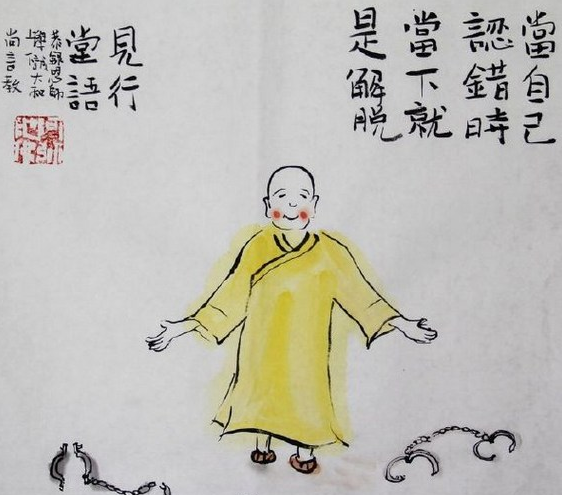 當自己
認錯時
當下就
是解脫
見行
堂語
恭錄恩師
大和
尚言教